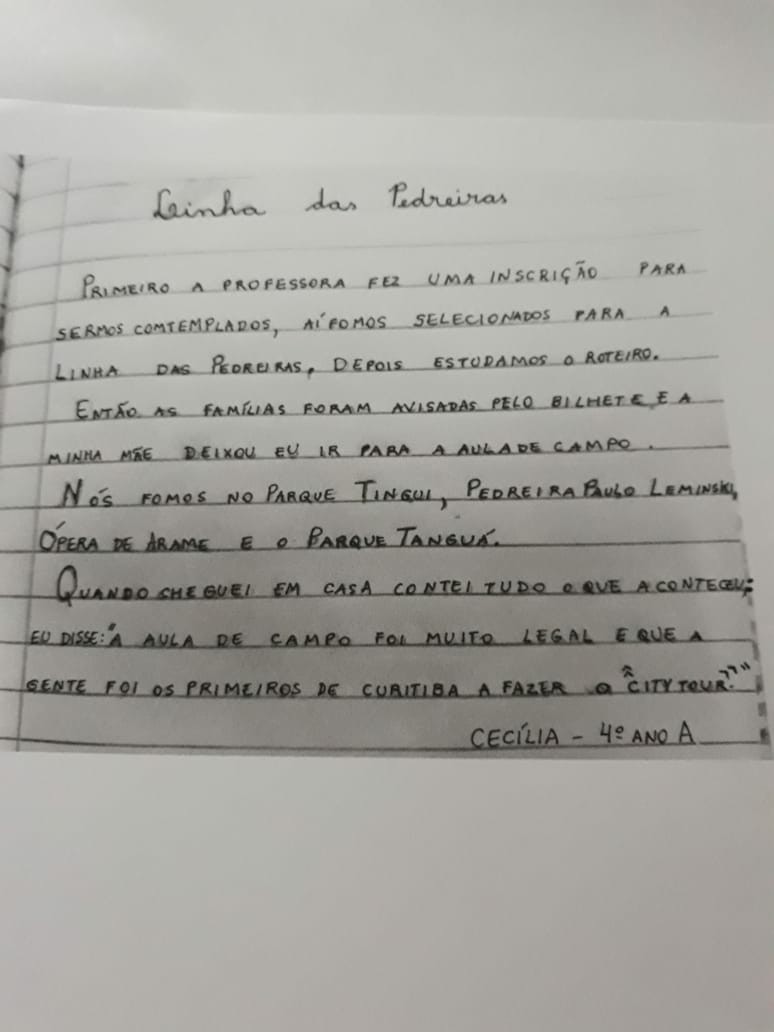 Linha das Pedreiras
PRIMEIRO A PROFESSORA FEZ UMA INSCRIÇÃO PARA
SERMOS COMTEMPLADOS, AÍ FOMOS SELECIONADOS PARA A
LINHA DAS PEDREIRAS, DEPOIS ESTUDAMOS O ROTEIRO.
ENTÃO AS FAMÍLIAS FORAM AVISADAS PELO BILHETE, E A
MINHA MÃE DEIXOU EU IR PARA A AULA DE CAMPO.
NÓS FOMOS NO PARQUE TINGUI, PEDREIRA PAULO LEMINSKI,
ÓPERA DE ARAME E O PARQUE TANGUÁ.
QUANDO CHEGUEI EM CASA CONTEI TUDO O QUE ACONTECEU;
EU DISSE: "A AULA DE CAMPO FOI MUITO LEGAL E QUE A
GENTE FOI OS PRIMEIROS DE CURITIBA A FAZER O "CITY TOUR"."
CECÍLIA - 4º ANO A